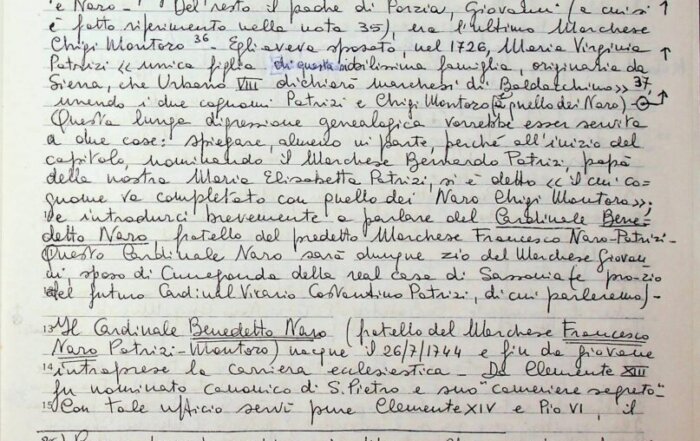 e Naro - Del resto il padre di Porzia, Giovanni (a cui si
è fatto riferimento nella nota 35), era l'ultimo Marchese
Chigi Montoro 36 - Egli aveva sposato, nel 1726, Maria Virginia
Patrizi « unica figlia di questa nobilissima famiglia, originaria da
Siena, che Urbano VIII dichiarò marchesi di Baldacchino» 37,
unendo i due cognomi Patrizi e Chigi Montoro (a quello dei Naro) -
Questa lunga digressione genealogica vorrebbe esser servita
a due cose: spiegare, almeno in parte, perché all'inizio del
capitolo, nominando il Marchese Bernardo Patrizi, papà
della nostra Maria Elisabetta Patrizi, si è detto «il cui co-
gnome va completato con quello dei Naro Chigi Montoro»;
e introdurci brevemente a parlare del Cardinale Bene-
detto Naro fratello del predetto Marchese Francesco Naro-Patrizi-
Questo Cardinale Naro sarà dunque zio del Marchese Giovan
ni, sposo di Cunegonda della real casa di Sassonia (e pro-zio
del futuro Cardinal Vicario Costantino Patrizi, di cui parleremo)-
13 Il Cardinale Benedetto Naro (fratello del Marchese Francesco
Naro Patrizi-Montoro) nacque il 26/7/1744 e fin da giovane
14 intraprese la carriera ecclesiastica - Da Clemente XIII
fu nominato canonico di S. Pietro e suo "cameriere segreto"-
15 Con tale ufficio servì pure Clemente XIV e Pio VI, il